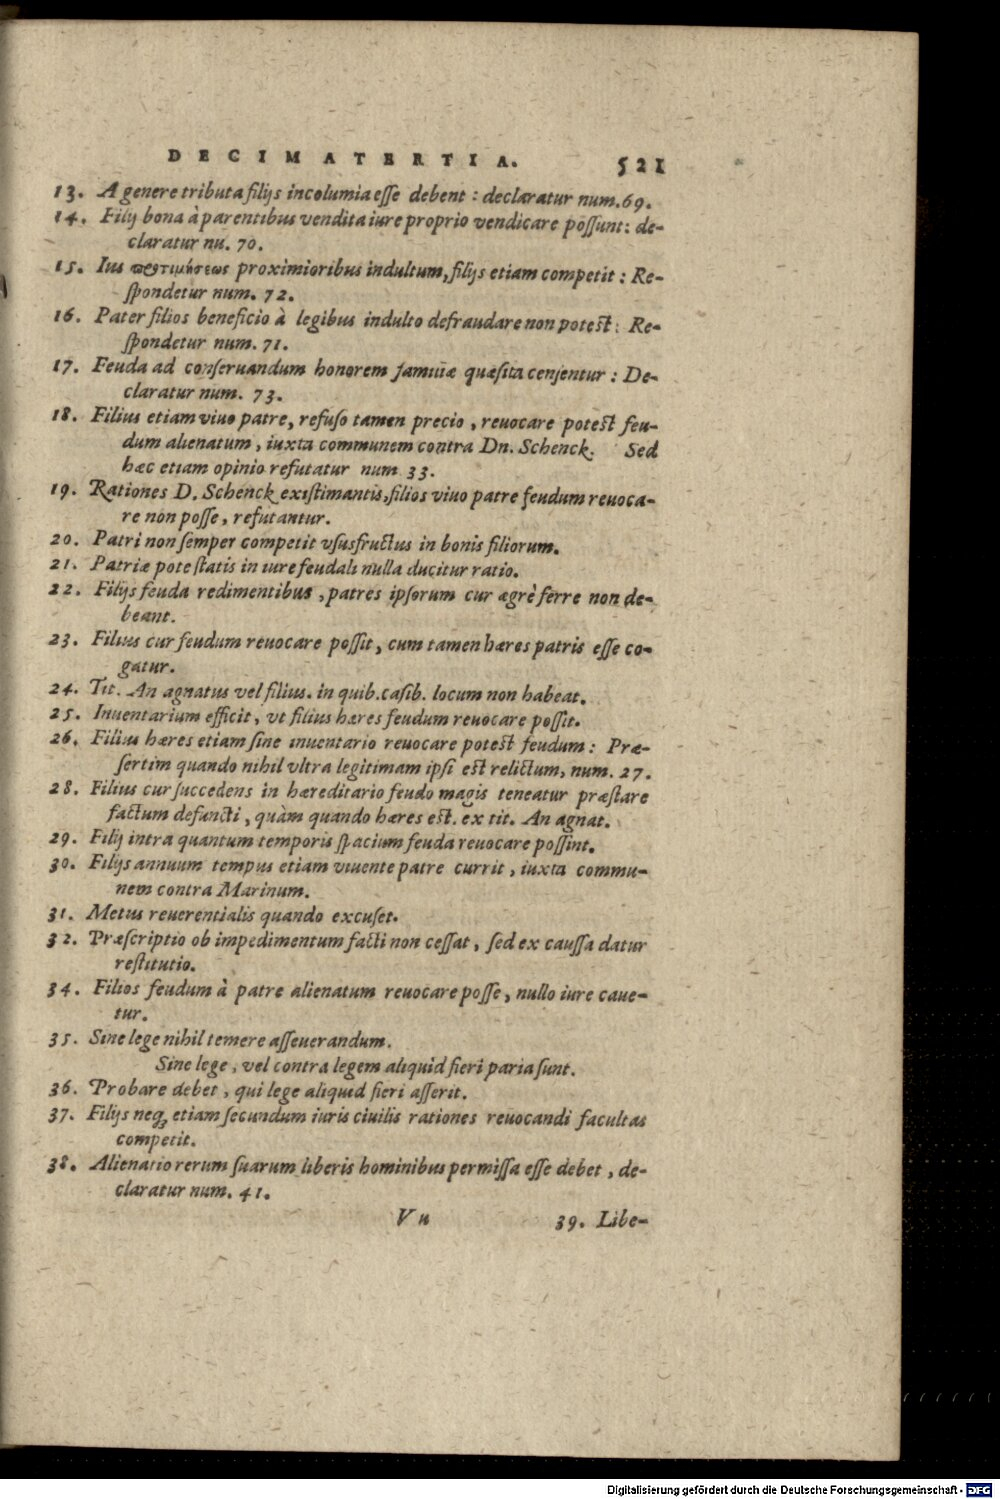 DECIMATERTIA. 521
13. A genere tributa filijs incolumia esse debent : declaratur num. 69.
14. Filij bona à parentibus vendita iure proprio vendicare possunt: de-
claratur nu. 70.
15. Ius προτιμήσεως proximioribus indultum, filijs etiam competit : Re-
spondetur num. 72.
16. Pater filios beneficio à legibus indulto defraudare non potest: Re-
spondetur num. 71.
17. Feuda ad conseruandum honorem familiæ quæsita censentur : De-
claratur num. 73.
18. Filius etiam viuo patre, refuso tamen precio, reuocare potest feu-
dum alienatum, iuxta communem contra Dn. Schenck. Sed
hæc etiam opinio refutatur num 33.
19. Rationes D. Schenck existimantis, filios viuo patre feudum reuoca-
re non posse, refutantur.
20. Patri non semper competit vsusfructus in bonis filiorum.
21. Patriæ potestatis in iure feudali nulla ducitur ratio.
22. Filijs feuda redimentibus, patres ipsorum cur ægrè ferre non de-
beant.
23. Filius cur feudum reuocare possit, cum tamen hæres patris esse co-
gatur.
24. Tit. An agnatus vel filius. in quib. casib. locum non habeat.
25. Inuentarium efficit, vt filius hæres feudum reuocare possit.
26. Filius hæres etiam sine inuentario reuocare potest feudum : Præ-
sertim quando nihil vltra legitimam ipsi est relictum, num. 27.
28. Filius cur succedens in hæreditario feudo magis teneatur præstare
factum defuncti, quàm quando hæres est. ex tit. An agnat.
29. Filij intra quantum temporis spacium feuda reuocare possint.
30. Filijs annuum tempus etiam viuente patre currit, iuxta commu-
nem contra Marinum.
31. Metus reuerentialis quando excuset.
32. Præscriptio ob impedimentum facti non cessat, sed ex caussa datur
restitutio.
34. Filios feudum à patre alienatum reuocare posse, nullo iure caue-
tur.
35. Sine lege nihil temere asseuerandum.
Sine lege, vel contra legem aliquid fieri paria sunt.
36. Probare debet, qui lege aliquid fieri asserit.
37. Filijs neq; etiam secundum iuris ciuilis rationes reuocandi facultas
competit.
38. Alienatio rerum suarum liberis hominibus permissa esse debet, de-
claratur num. 41.
Vu 39. Libe-
Digitalisierung gefördert durch die Deutsche Forschungsgemeinschaft - DFG